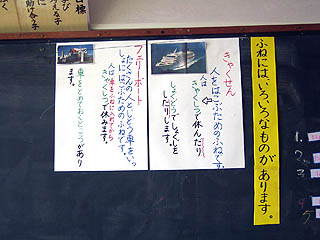 ふねには、いろいろなものがあります。
きゃくせん
人をはこぶためのふねです。
人は
きゃくしつで休んだり
しょくどうでしょくじを
したりします。
フェリーボート
たくさんの人とじどう車をいっ
しょにはこぶためのふねです。
人は車をふねに入れてから
きゃくしつで休みます。
車をとめておくところがあり
ます。
1.
2.
3
4
5